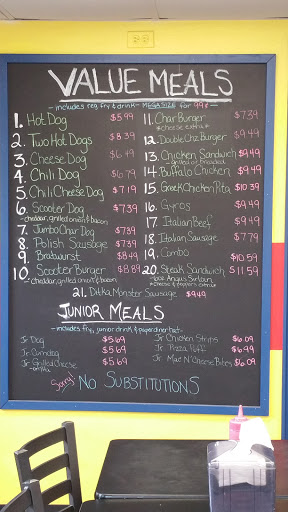 VALUE MEALS
-includes reg. fry & drink- MEGASIZE for 99¢-
1. Hot Dog $5.99
2. Two Hot Dogs $8.39
3. Cheese Dog $6.49
4. Chili Dog $6.79
5. Chili Cheese Dog $7.19
6. Scooter Dog $7.39
-cheddar, grilled onion & bacon
7. Jumbo Char Dog $7.39
8. Polish Sausage $7.39
9. Bratwurst $8.49
10. Scooter Burger $8.89
-cheddar, grilled onion & bacon
11. Char Burger $7.39
*cheese extra*
12. Double Chz Burger $9.49
13. Chicken Sandwich $9.49
-grilled or breaded
14. Buffalo Chicken $9.49
15. Greek Chicken Pita $10.39
16. Gyros $9.49
17. Italian Beef $9.49
18. Italian Sausage $7.79
19. Combo $10.59
20. Steak Sandwich $11.59
*100% Angus Sirloin
*cheese & peppers extra*
21. Ditka Monster Sausage $9.49
JUNIOR MEALS
-includes fry, junior drink & paper diner hat-
Jr. Dog $5.69
Jr. Corndog $5.69
Jr. Grilled Cheese $5.69
Jr. Chicken Strips $6.09
Jr. Pizza Puff $6.99
Jr. Mac N' Cheese Bites $6.09
Sorry! NO SUBSTITUTIONS